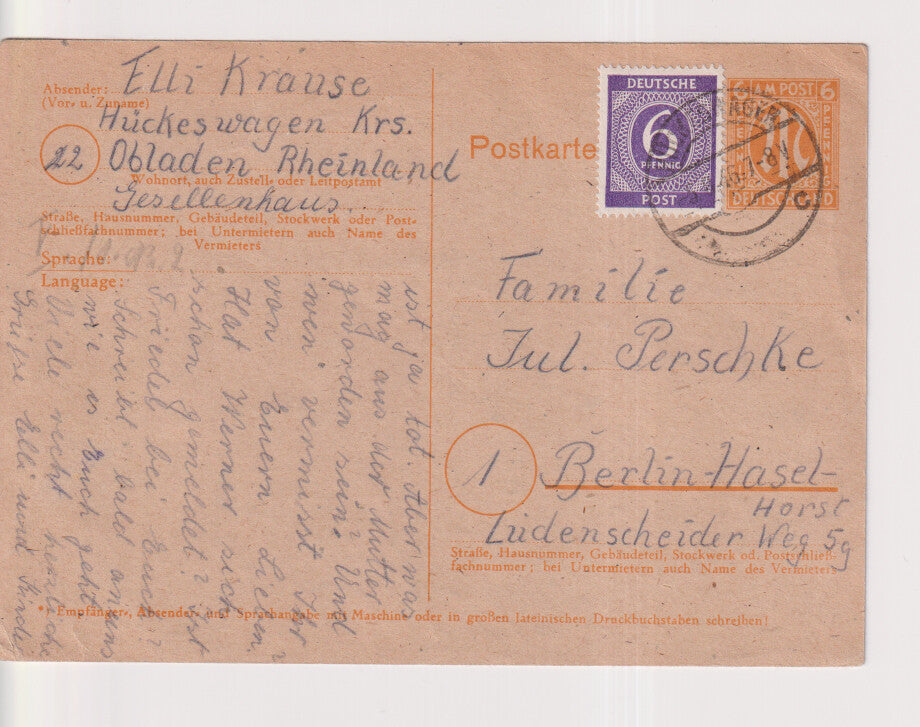 Absender:
(Vor- u. Zuname)
Elli Krause
Hückeswagen Krs.
22 Obladen Rheinland
Wohnort, auch Zustell- oder Leitpostamt
Gesellenhaus
Straße, Hausnummer, Gebäudeteil, Stockwerk oder Post-
schließfachnummer; bei Untermietern auch Name des
Vermieters
Sprache:
Language:
Postkarte
DEUTSCHE
6
PFENNIG
POST
AM POST
6
PFENNIG
DEUTSCHLAND
Familie
Jul. Perschke
1 Berlin-Hasel-
Horst
Lüdenscheider Weg 5g
Straße, Hausnummer, Gebäudeteil, Stockwerk od. Postschließ-
fachnummer; bei Untermietern auch Name des Vermieters
ist ja tot. Aber was
mag aus der Mutter
geworden sein? Und
wen vermisst Ihr
von Euern Lieben.
Hat Werner sich
schon gemeldet? Ist
Friedel bei Euch?
Schreibt bald ans
wie es Euch geht.
Viele recht herzliche
Grüße Elli und Kinder
*) Empfänger-, Absender- und Sprachangabe mit Maschine oder in großen lateinischen Druckbuchstaben schreiben!